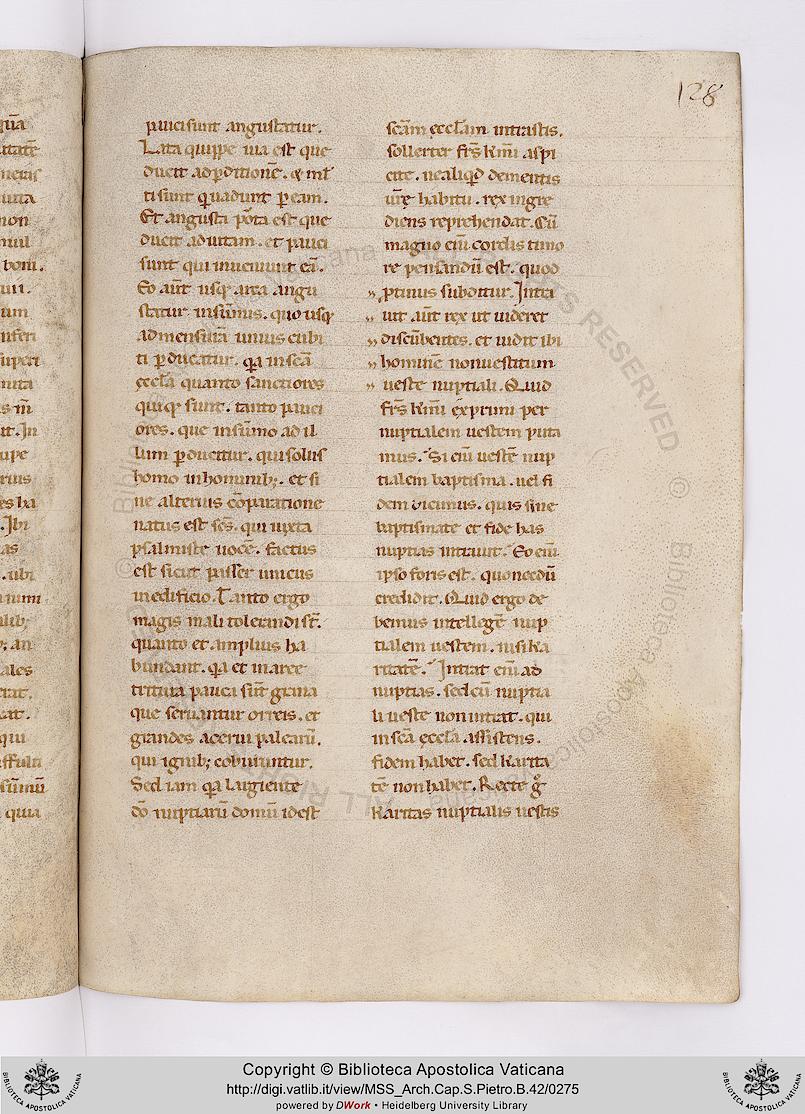 128
pauci sunt angustatur.
Lata quippe uia est que
ducit ad pditionē. & ml̄
ti sunt qui uadunt p eam.
Et angusta pōta est que
ducit ad uitam. et pauci
sunt qui inueniunt eā.
Eo aūt usq; arca angu
statur in sūmis. quo usq;
ad mensurā unius cubi
ti pducatur. qa in scā
ęcclā quanto sanctiores
qui q; sunt. tanto pauci
ores. que in sūmo ad il
lum pducitur. qui solus
homo in hominib;. et si
ne alterius cōparatione
natus est sc̄s. qui iuxta
psalmiste uocē. factus
est sicut passer unicus
in edificio. Tanto ergo
magis mali tolerandi st̄.
quanto et amplius ha
bundant. qa et in area
tritura pauci sūt grana
que seruantur orreis. et
grandes acerui palearū.
qui ignib; coburuntur.
Sed iam qa largiente
dō nuptiarū domū id est
scām ęcclam intrastis.
sollerter frs̄ kmi aspi
cite. ne aliqd de mentis
ur̄ę habitu. rex ingre
diens reprehendat. Cū
magno eni cordis timo
re pensandū est. quod
ptinus subditur. Intra
uit aūt rex ut uideret
discūbentes. et uidit ibi
hominē non uestitum
ueste nuptiali. Quid
frs̄ kmi exprimi per
nuptialem uestem puta
mus. Si eni uestē nup
tialem baptisma. uel fi
dem dicimus. quis sine
baptismate et fide has
nuptias intrauit. Eo eni
ipso foris est. quo necdū
credidit. Quid ergo de
bemus intellegē nup
tialem uestem. nisi ka
ritatē. Intrat eni ad
nuptias. sed cū nuptia
li ueste non intrat. qui
in scā ęcclā assistens.
fidem habet. sed karita
tē non habet. Recte g̊
karitas nuptialis uestis
quā
tatē
nuta
non
bom.
um
inferi
superi
s m̄
ut. In
es ha
. Ibi
as
. ubi
lib;
; an
ales
rat.
qui
sūmū
quia
Copyright © Biblioteca Apostolica Vaticana
http://digi.vatlib.it/view/MSS_Arch.Cap.S.Pietro.B.42/0275
powered by DWork • Heidelberg University Library